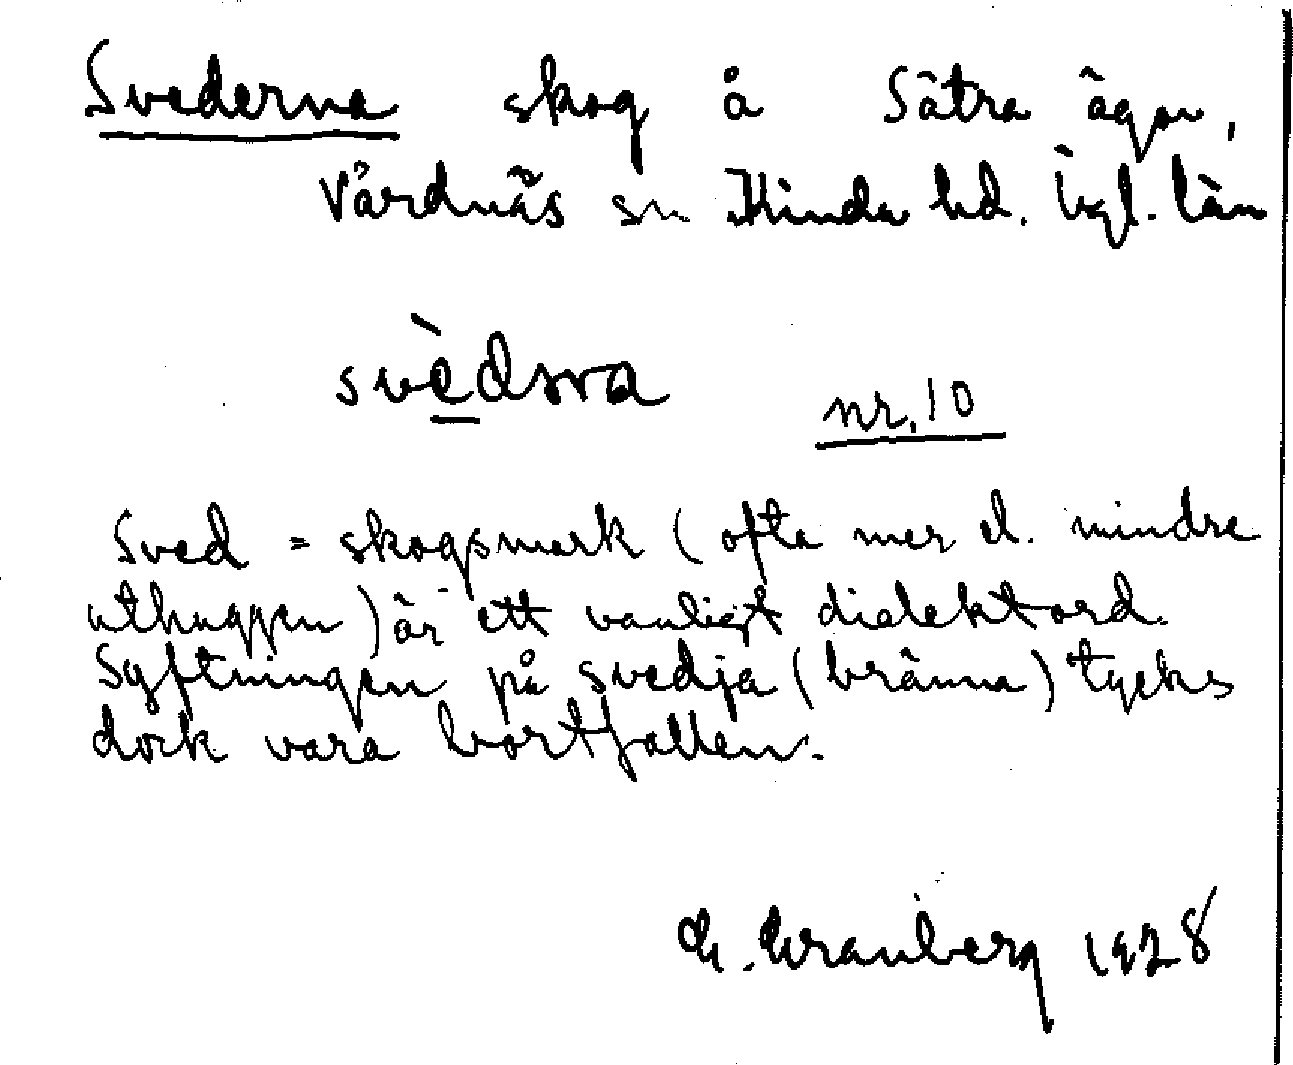 Svederna skog å Sätra ägor,
Vårdnäs sn Kinda hd. Ögl. län
svèdṇa
nr. 10
Sved = skogsmark (ofta mer el. mindre
uthuggen) är ett vanligt dialektord.
Syftningen på svedja (bränna) tycks
dock vara bortfallen.
1928